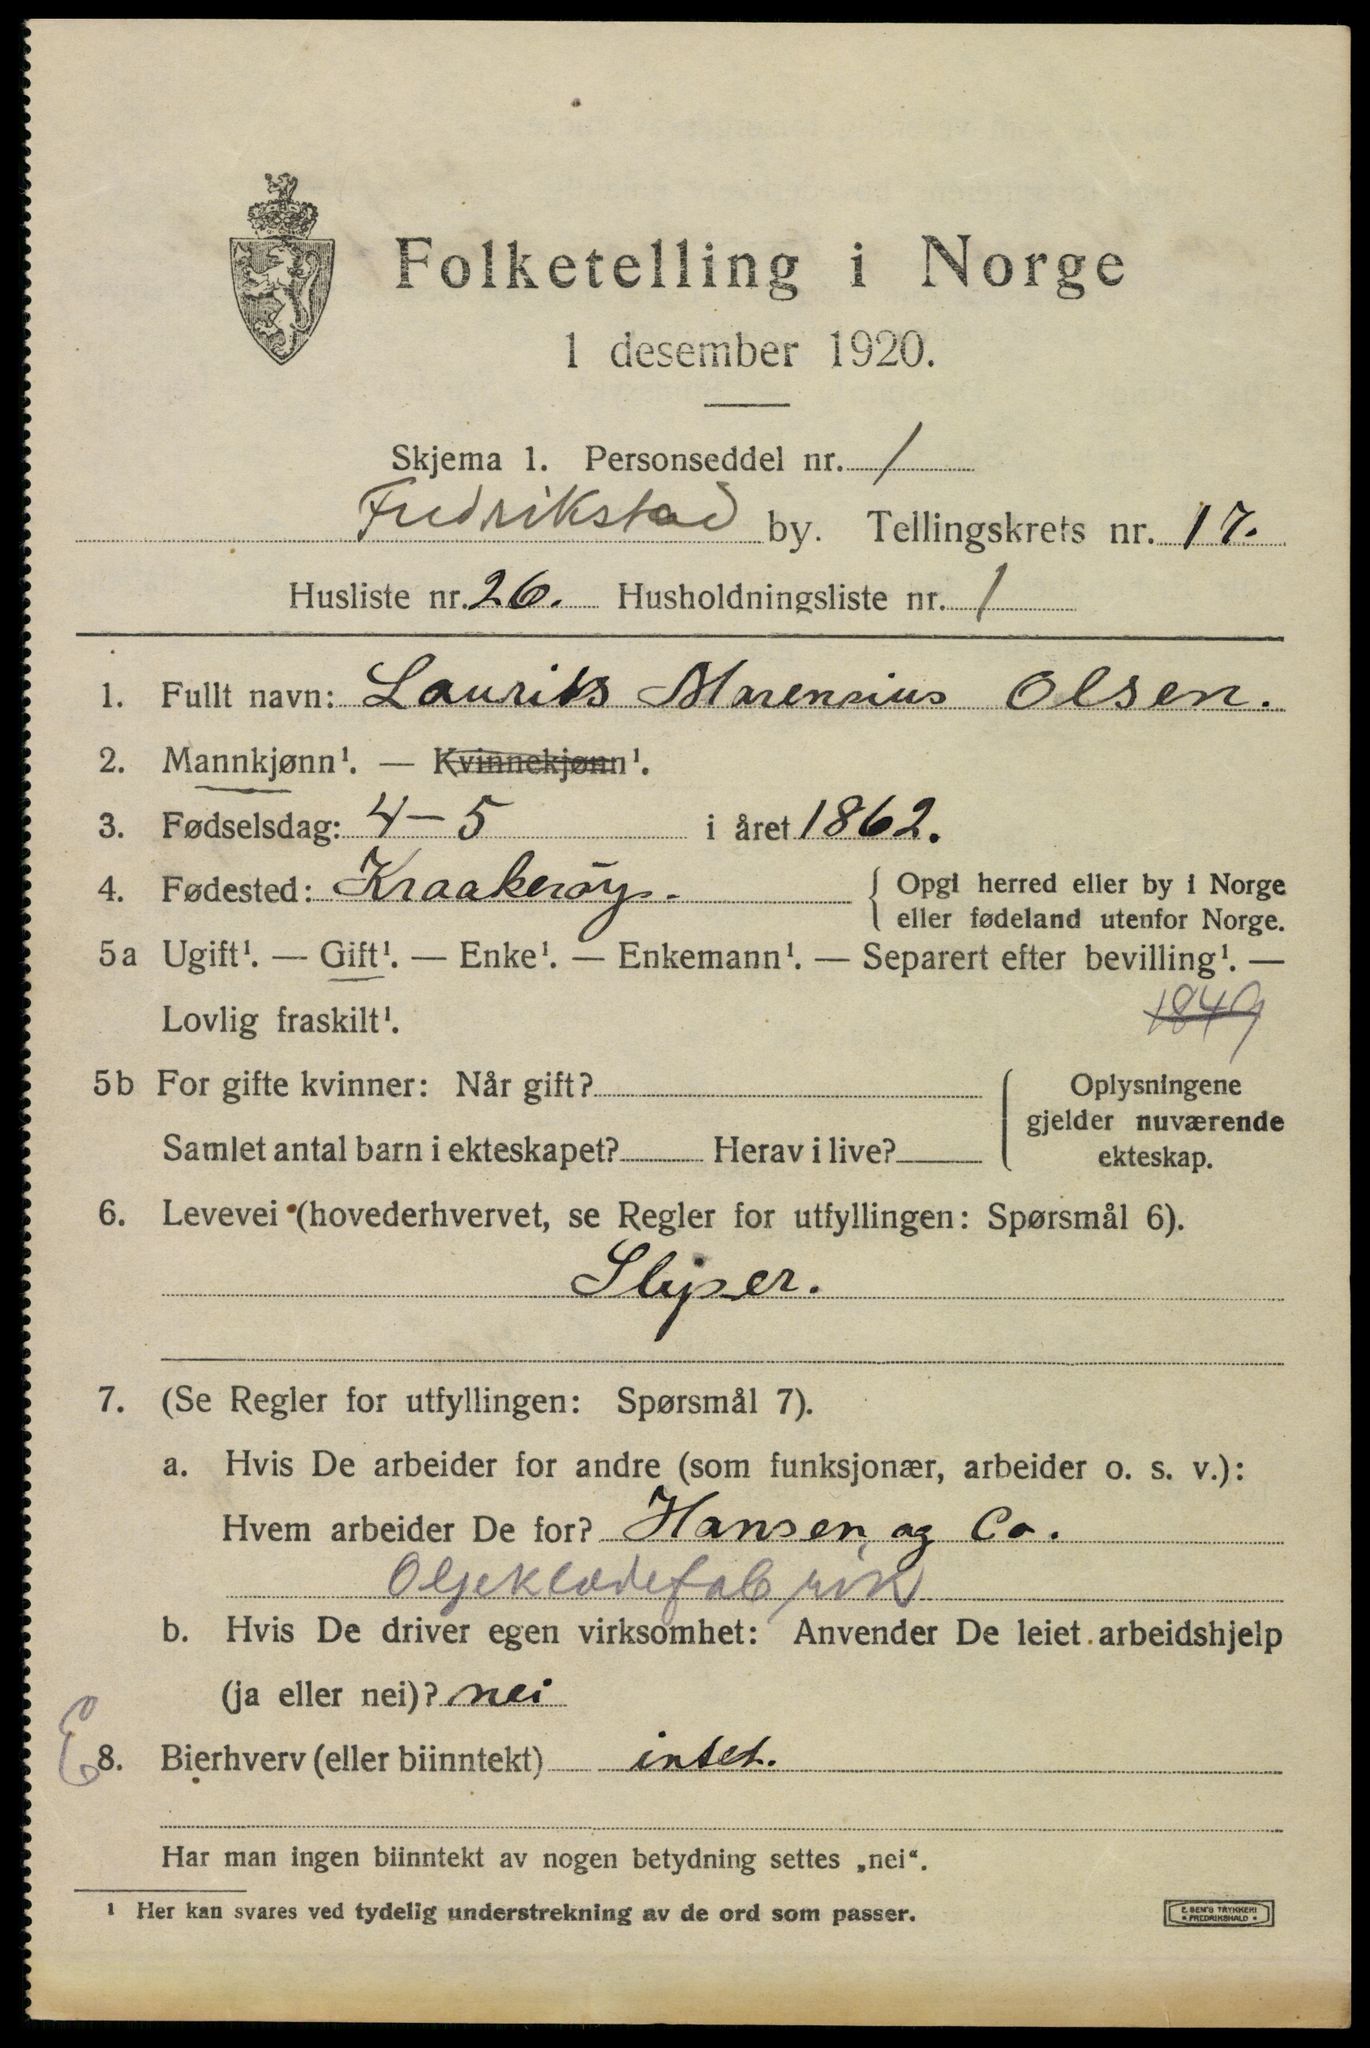 Folketelling i Norge
1 desember 1920.
Skjema 1. Personseddel nr. 1
Fredrikstad by. Tellingskrets nr. 17.
Husliste nr. 26. Husholdningsliste nr. 1
1. Fullt navn: Laurits Marensius Olsen.
2. Mannkjønn¹. — Kvinnekjønn¹.
3. Fødselsdag: 4-5 i året 1862.
4. Fødested: Kraakerøy. { Opgi herred eller by i Norge
eller fødeland utenfor Norge.
5a Ugift¹. — Gift¹. — Enke¹. — Enkemann¹. — Separert efter bevilling¹. —
Lovlig fraskilt¹. 1849
5b For gifte kvinner: Når gift? Oplysningene
gjelder nuværende
Samlet antal barn i ekteskapet? Herav i live? ekteskap.
6. Levevei (hovederhvervet, se Regler for utfyllingen: Spørsmål 6).
Sliper.
7. (Se Regler for utfyllingen: Spørsmål 7).
a. Hvis De arbeider for andre (som funksjonær, arbeider o. s. v.):
Hvem arbeider De for? Hansen og Co.
Oljeklædefabrik
b. Hvis De driver egen virksomhet: Anvender De leiet arbeidshjelp
(ja eller nei)? nei
8. Bierhverv (eller biinntekt) intet.
Har man ingen biinntekt av nogen betydning settes „nei“.
¹ Her kan svares ved tydelig understrekning av de ord som passer.
E. SEM'S TRYKKERI
* FREDRIKSHALD *